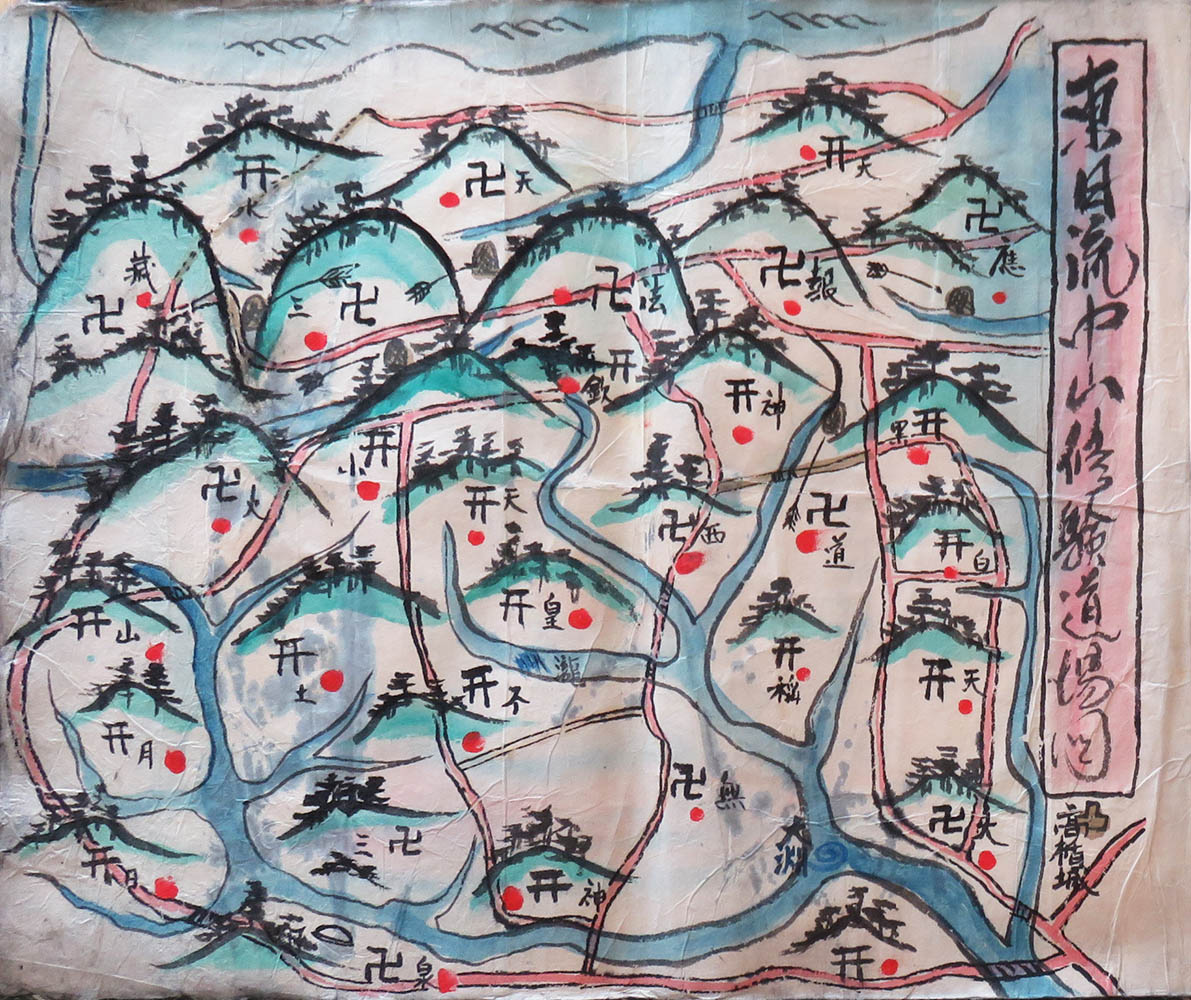 東日流中山修験道場図
高楯城
开水
卍天
开天
卍蔵
卍三
卍法
卍報
卍應
开飲
开神
开黒
卍火
开小
开天
卍西
卍道
开白
开山
开土
开皇
瀧
开
开天
开月
开不
卍無
大渊
卍大
开日
卍三
开神
卍泉
开